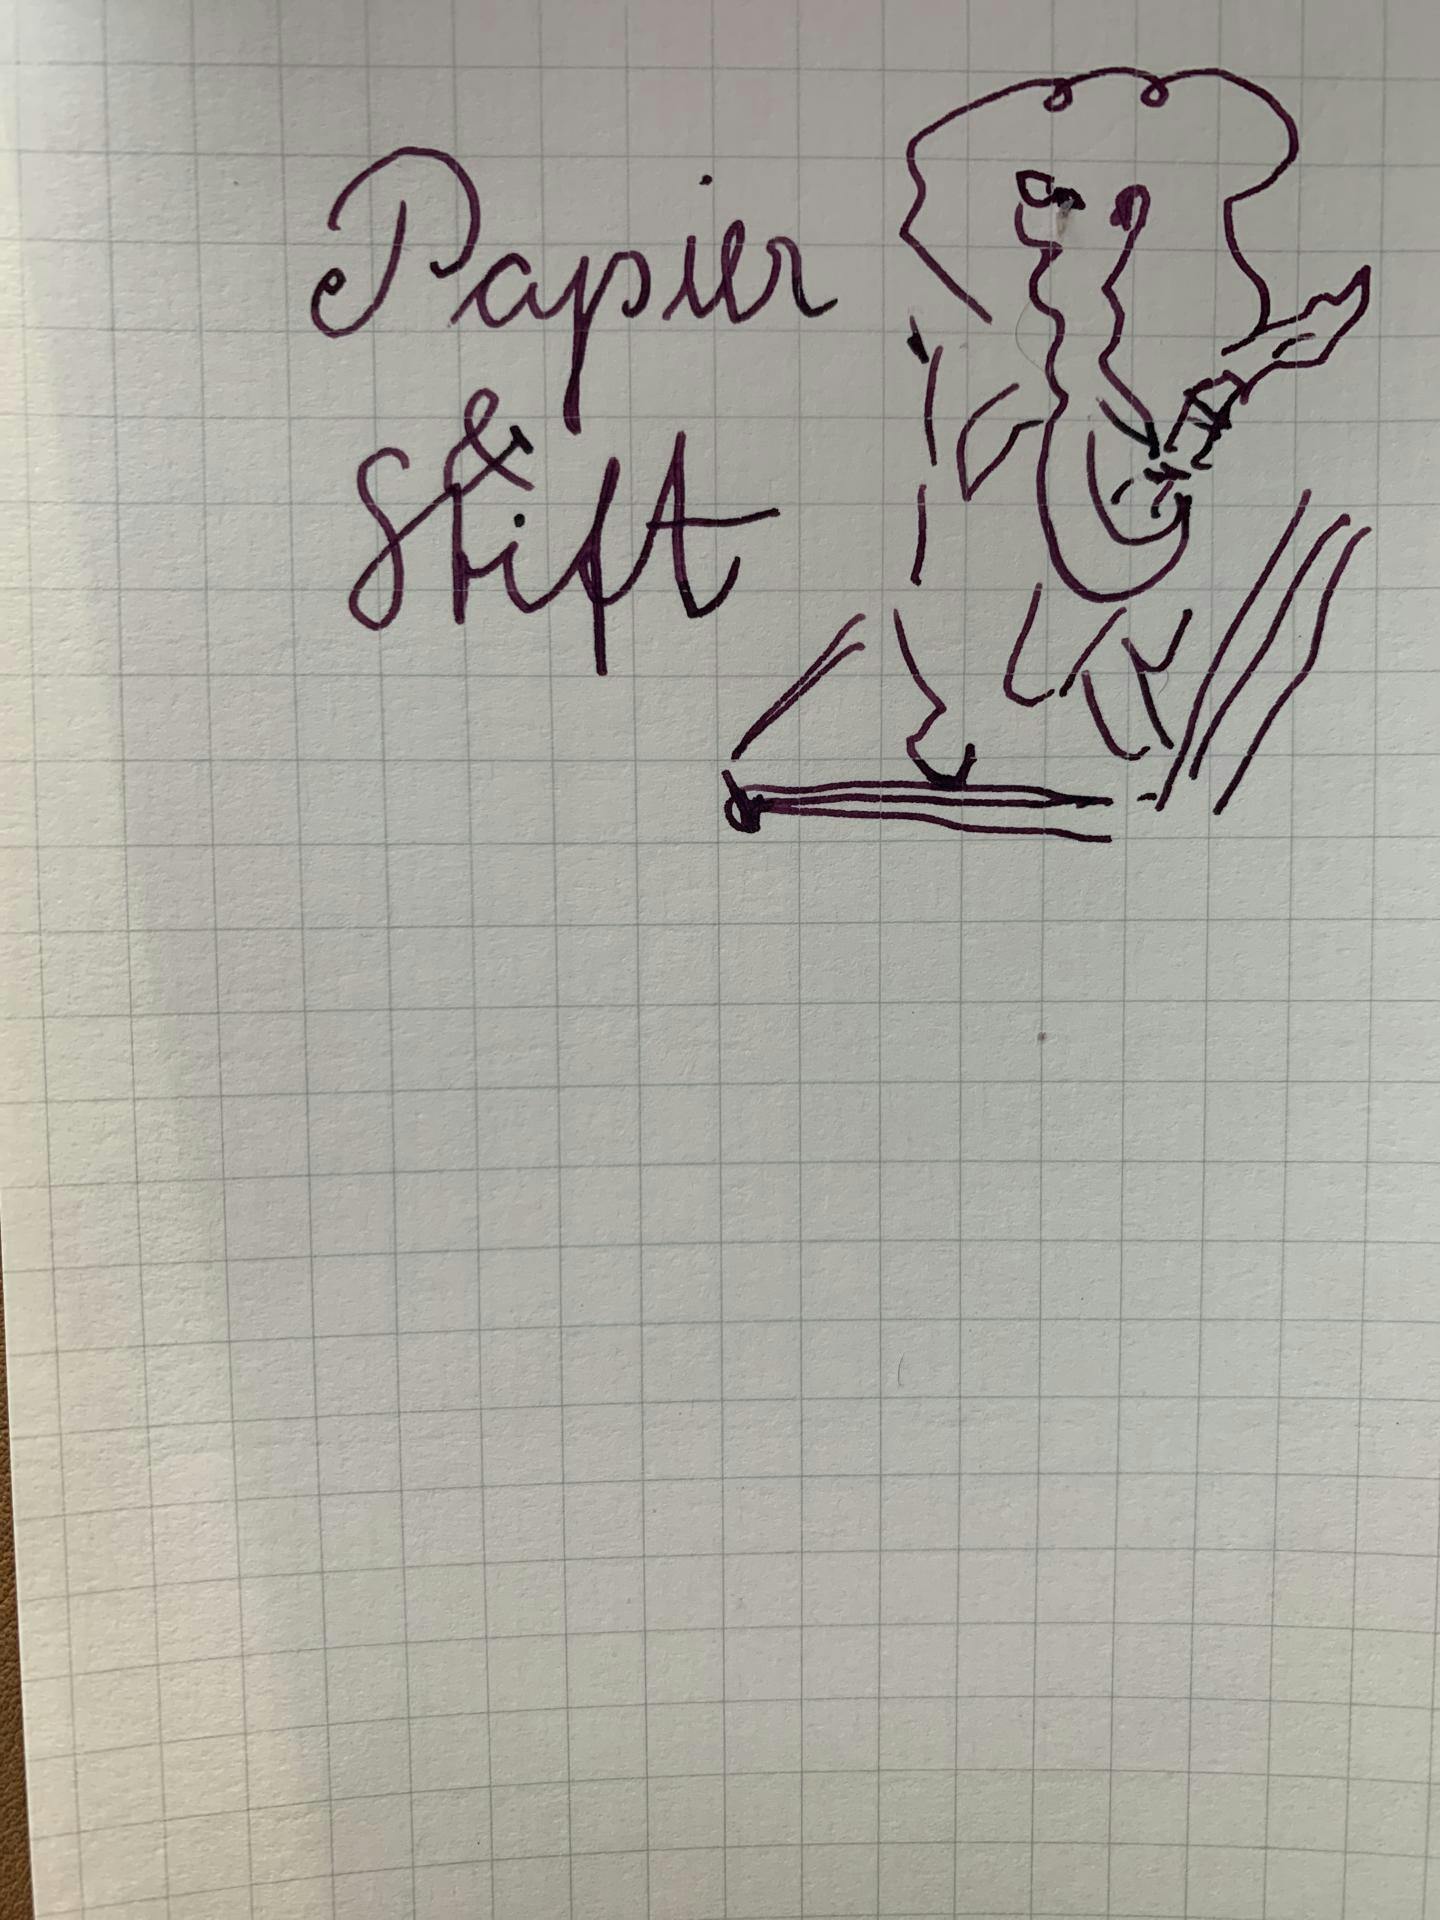 Papier
&
Stift